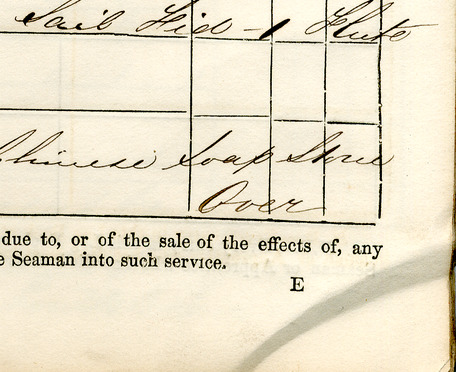 Sail Hid - 1 Flute
Chinese Soap Stone
Over
due to, or of the sale of the effects of, any
e Seaman into such service.
E